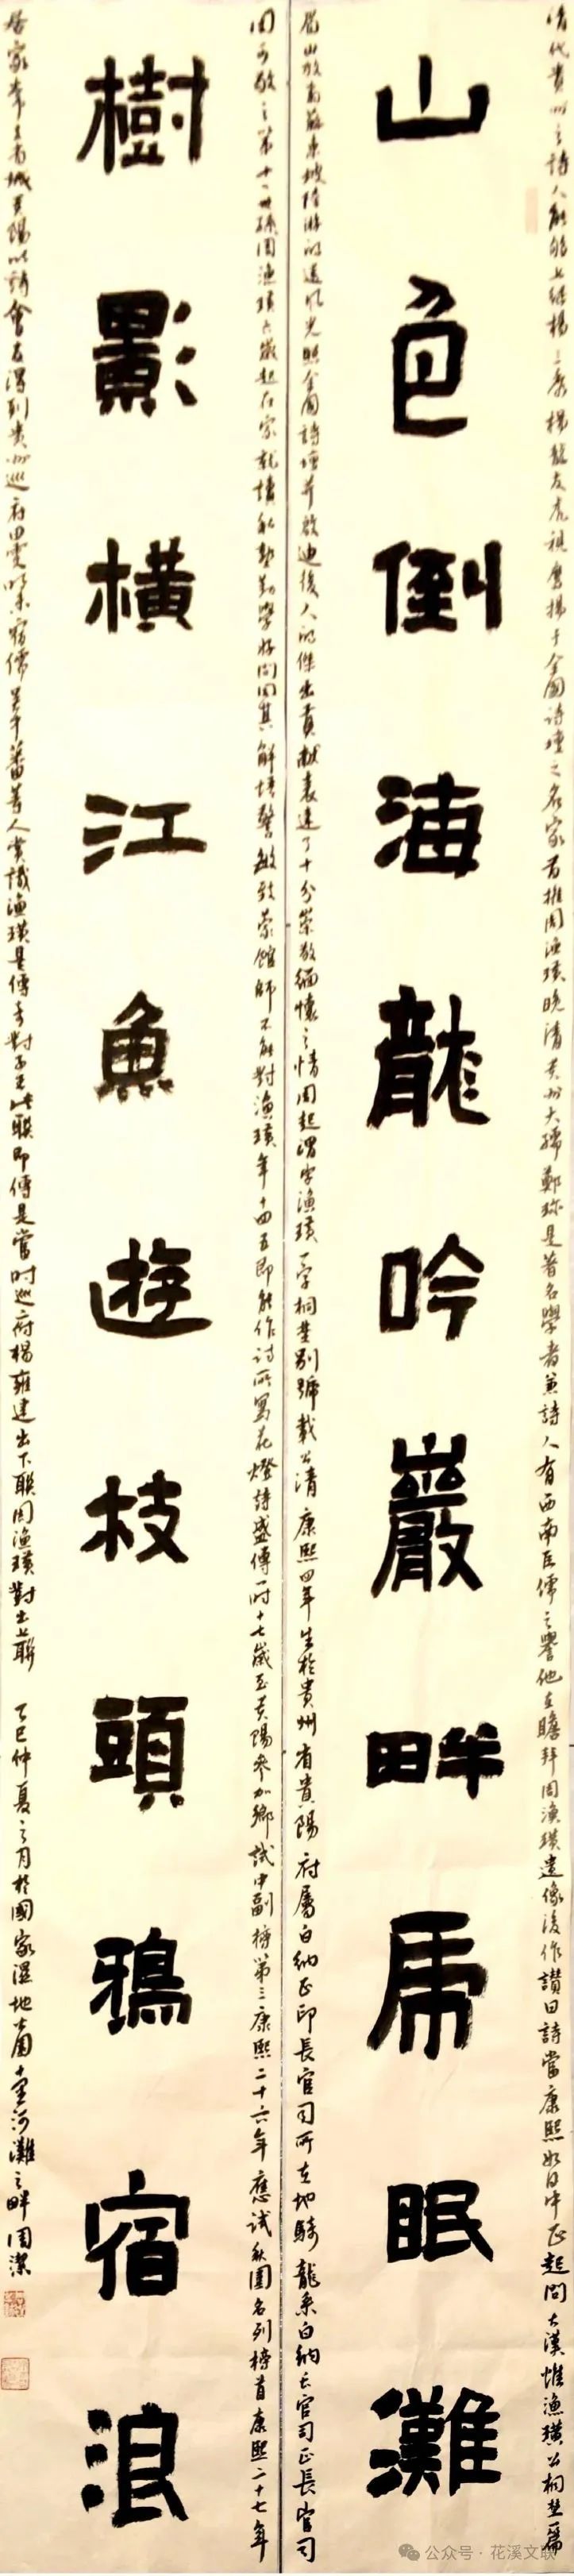 清代贵州之詩人能够上继楊三秀楊龍友先祖鹰揚于全國詩壇之名家首推周漁璜晚清贵州大儒鄭珍是著名學者兼詩人有西南巨儒之譽他在瞻拜周漁璜遺像後作讃曰詩當康熙如日中正起問大漢惟漁璜公桐埜篇
山色倒海龍吟巖畔虎眠灘
眉山放翁蘇東坡陸游的遺風光照全國詩壇并啟迪後人的傑出貢献表達了十分崇敬缅懷之情周起渭字漁璜一字桐埜别號載公清康熙四年生於貴州省貴陽府屬白纳正印長官司所在地騎龍系白纳長官司正長官司
樹影橫江魚遊枝頭鴉宿浪
周可敬之第十二世孫周漁璜六歲起在家就讀私塾勤學好問周其解悟警敏致蒙館師不能對漁璜年十四五即能作詩所寫花燈詩盛傳一时十七歲至贵陽參加鄉試中副榜第三康熙二十六年應試秋闈名列榜首康熙二十七年
居家奉
省城貴陽以詩會友得到贵州巡府田雯
宿儒
善人赏識漁璜是傳奇對子王此联即傳是當时巡府楊雍建出下联周漁璜對出上联
乙巳仲夏之月於國家濕地公園十里河灘之畔周潔
公众号·花溪文联